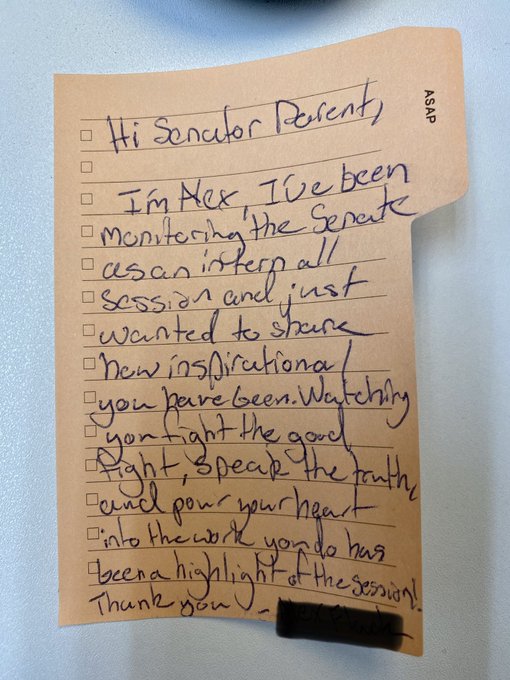 ASAP
Hi Senator Parent,
I'm Alex, I've been
monitoring the Senate
as an intern all
session and just
wanted to share
how inspirational
you have been. Watching
you fight the good
fight, speak the truth,
and pour your heart
into the work you do has
been a highlight of the session!
Thank you -